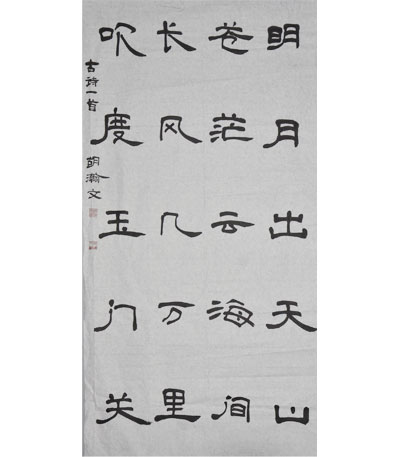 明月出天山
苍茫云海间
长风几万里
吹度玉门关
古诗一首 胡瀚文